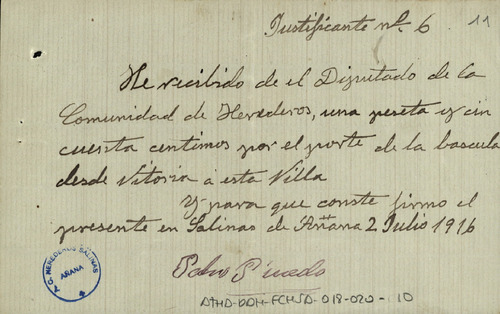 Justificante nº. 6
11
He recibido de el Diputado de la
Comunidad de Herederos, una peseta y cin
cuenta centimos por el porte de la bascula
desde Vitoria á esta Villa
Y para que conste firmo el
presente en Salinas de Añana 2 Julio 1916
Pedro Pinedo
HEREDEROS SALINAS
AÑANA
ATHA-DAH-FCHSA-018-020-10